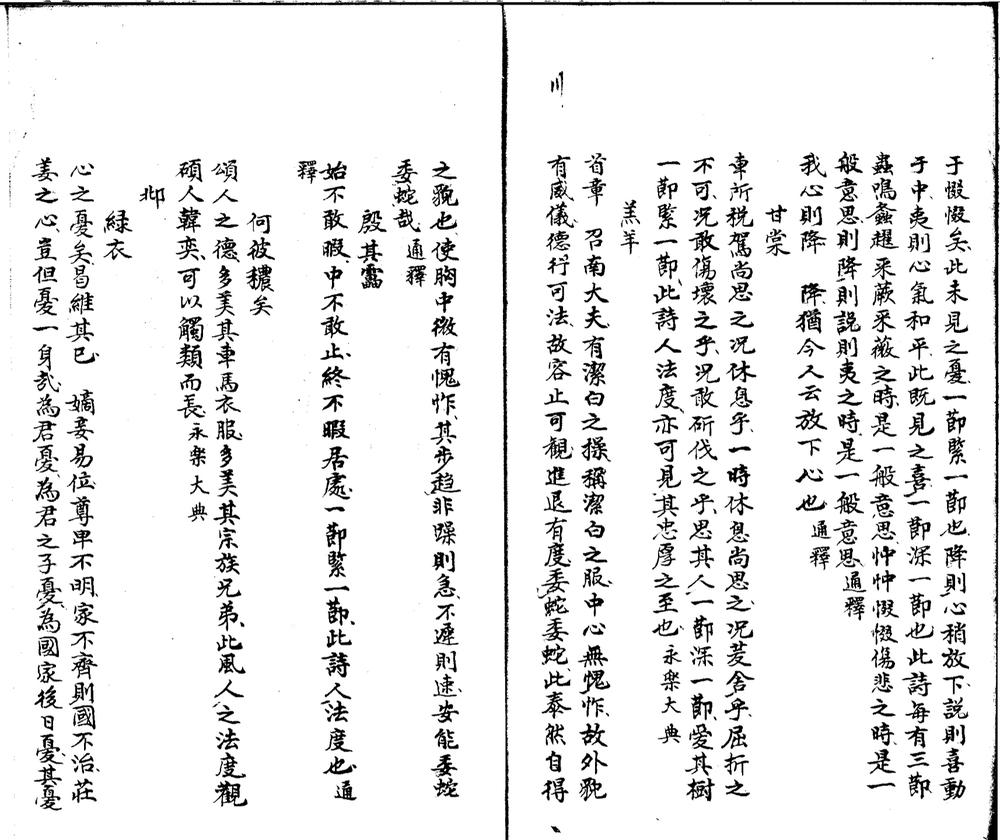 于惙惙矣此未見之憂一節緊一節也降則心稍放下說則喜動
于中夷則心氣和平此既見之喜一節深一節也此詩每有三節
蟲鳴螽趯采蕨采薇之時是一般意思忡忡惙惙傷悲之時是一
般意思則降則説則夷之時是一般意思通釋
我心則降 降猶今人云放下心也通釋
甘棠
車所稅駕尚思之况休息乎一時休息尚思之况茇舍乎屈折之
不可况敢傷壞之乎况敢斫伐之乎思其人一節深一節愛其樹
一節緊一節此詩人法度亦可見其忠厚之至也永樂大典
羔羊
首章 召南大夫有潔白之操稱潔白之服中心無愧怍故外貌
有威儀德行可法故容止可觀進退有度委蛇委蛇此泰然自得
之貌也使胸中微有愧怍其步趋非躁則急不遲則速安能委蛇
委蛇哉通釋
殷其靁
始不敢暇中不敢止終不暇居處一節緊一節此詩人法度也通
釋
何彼穠矣
頌人之德多美其車馬衣服多美其宗族兄弟此風人之法度觀
碩人韓奕可以觸類而長永樂大典
邶
緑衣
心之憂矣曷維其已 嫡妾易位尊卑不明家不齊則國不治莊
姜之心豈但憂一身㢤為君憂為君之子憂為國家後日憂其憂